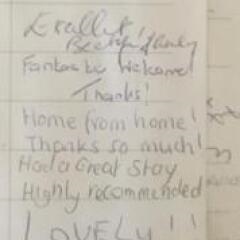 Excellent!
Fantastic Welcome!
Thanks!
Home from home!
Thanks so much!
Had a Great Stay
Highly recommended
LOVELY!!